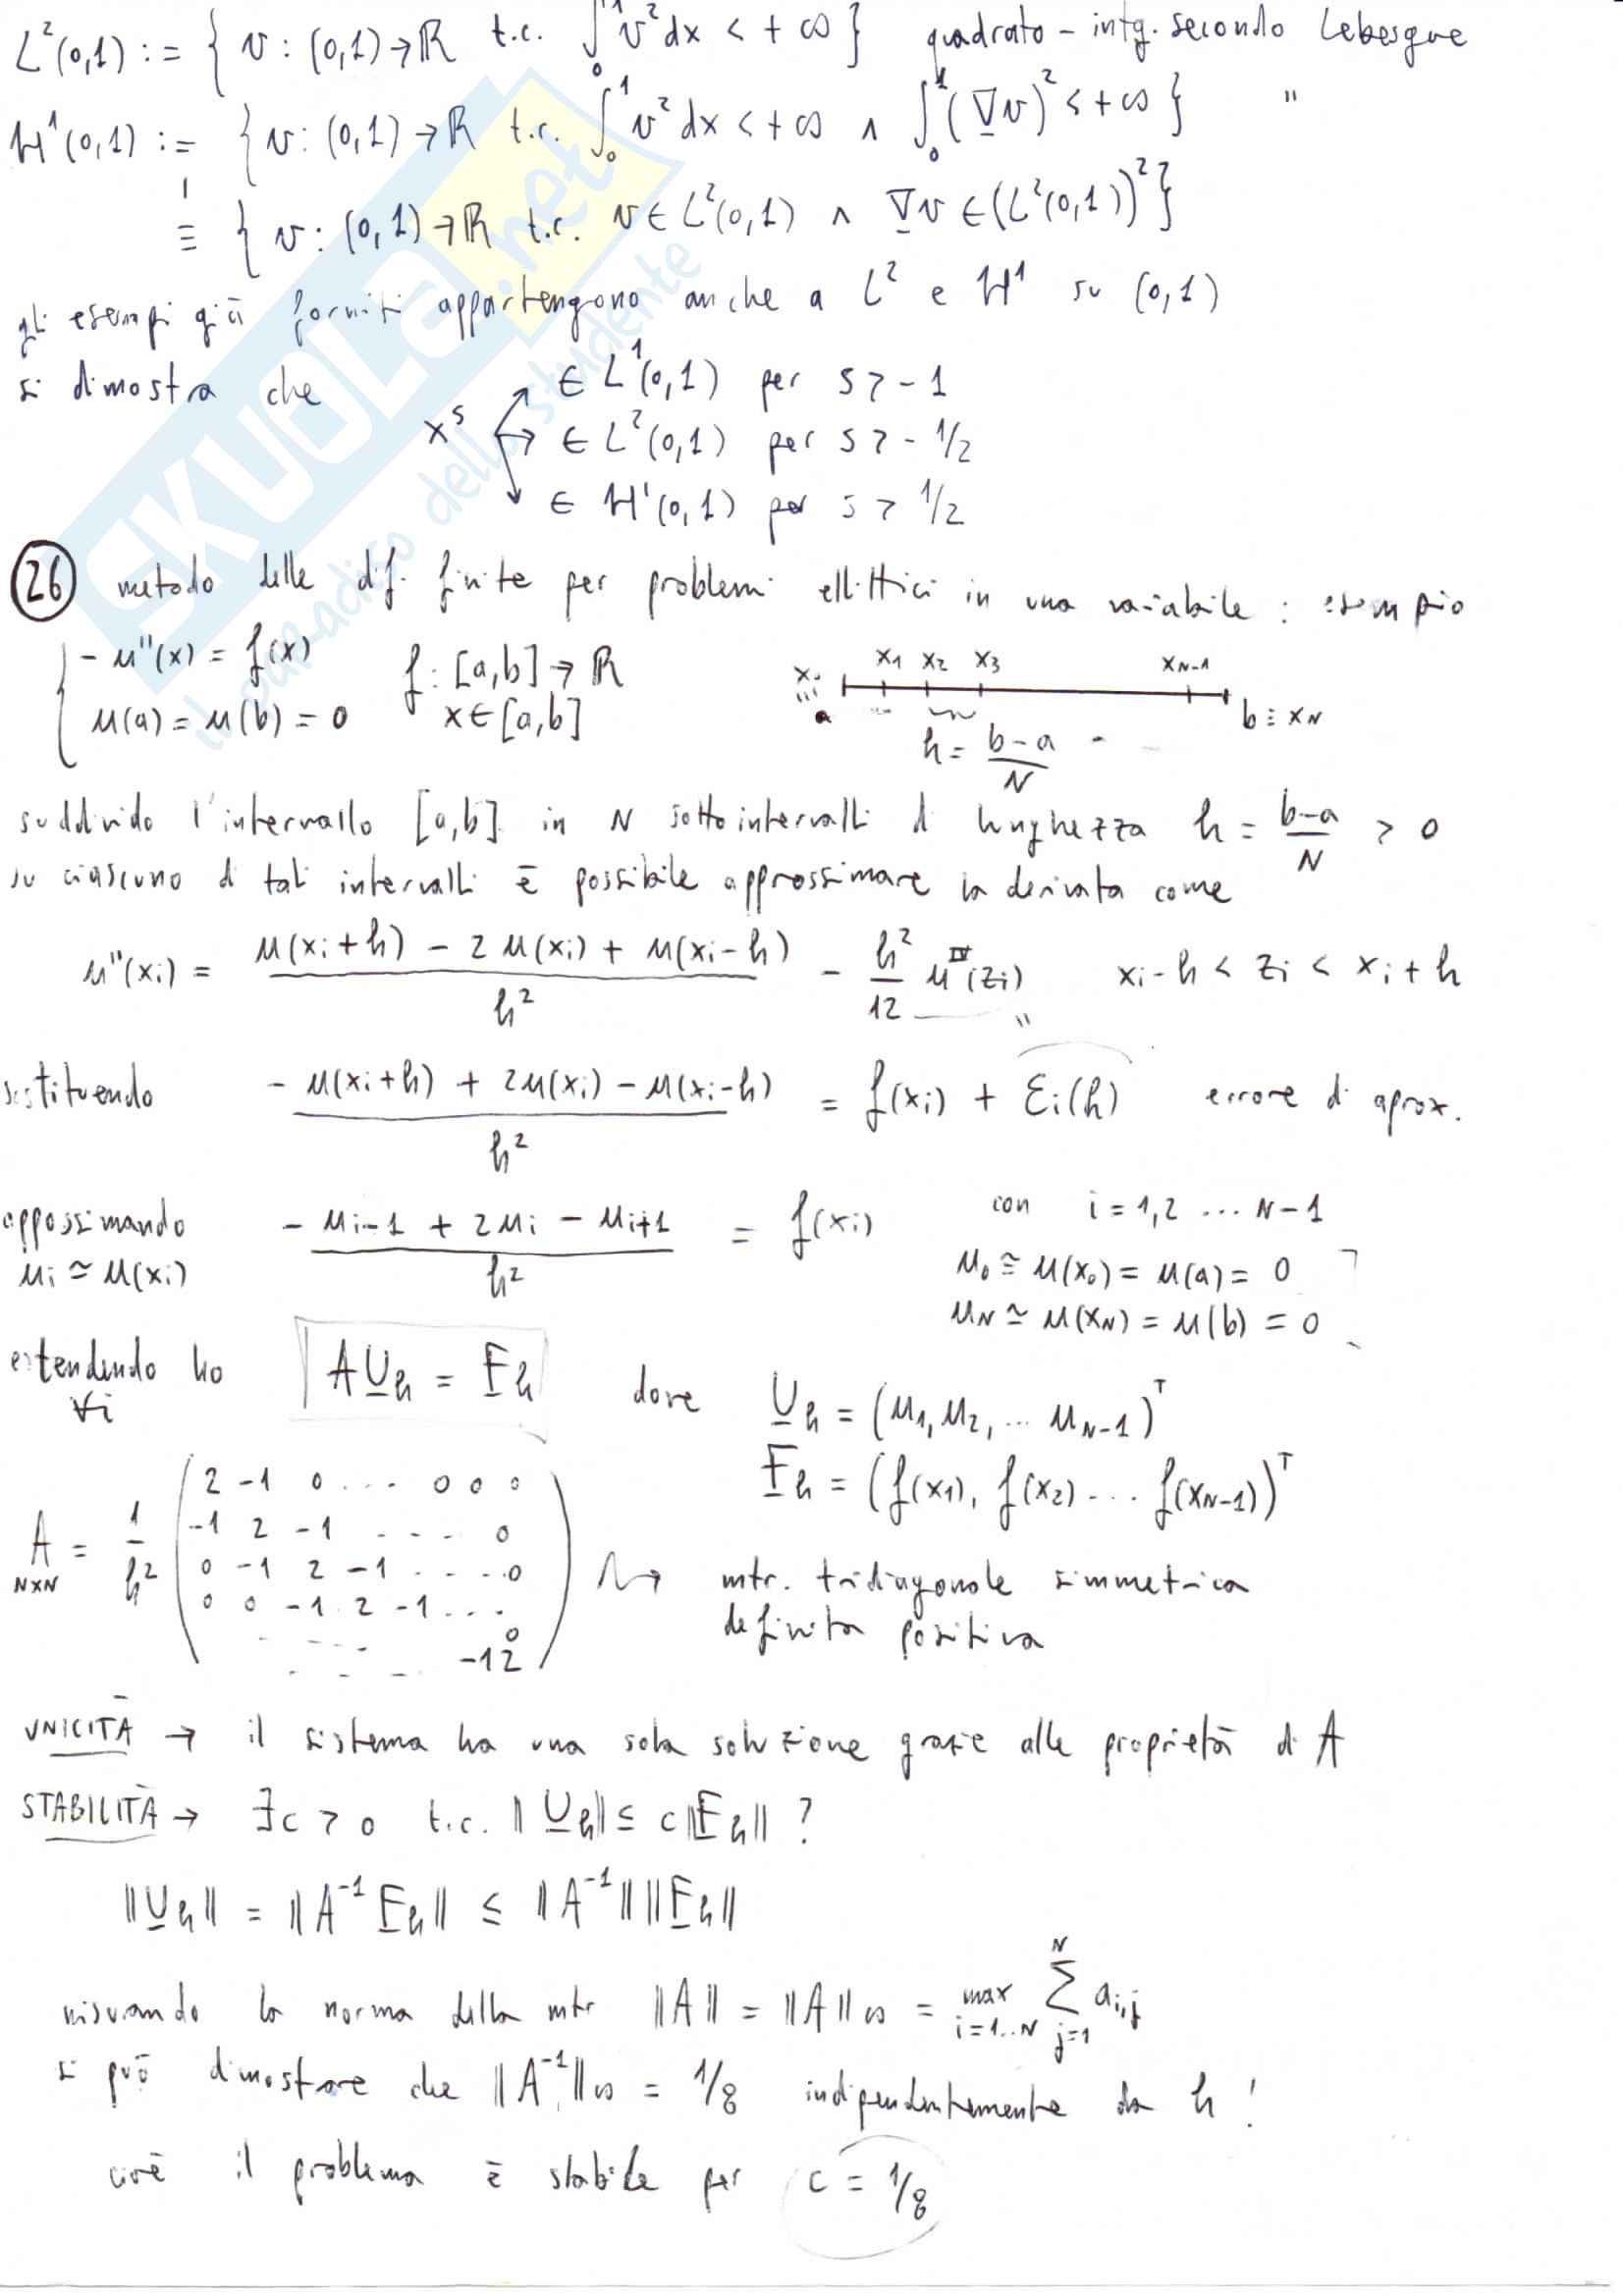 L²(0,1) := { v : (0,1) → ℝ t.c. ∫₀¹ v² dx < +∞ } quadrato - intg. secondo Lebesgue
H¹(0,1) := { v : (0,1) → ℝ t.c. ∫₀¹ v² dx < +∞ ∧ ∫₀¹ (∇v)² < +∞ } "
≡ { v : (0,1) → ℝ t.c. v ∈ L²(0,1) ∧ ∇v ∈ (L²(0,1))² }
gli esempi già forniti appartengono anche a L² e H¹ su (0,1)
si dimostra che
∈ L¹(0,1) per s > -1
xˢ → ∈ L²(0,1) per s > - 1/2
∈ H¹(0,1) per s > 1/2
SKUOLA.net
il paradiso dello studente
26 metodo delle dif. finite per problemi ellittici in una variabile : esempio
{ - u''(x) = f(x) f : [a,b] → ℝ
u(a) = u(b) = 0 x ∈ [a,b]
x₀ x₁ x₂ x₃ x_{N-1}
a b ≡ x_N
h = (b-a)/N
suddivido l'intervallo [a,b] in N sottointervalli di lunghezza h = (b-a)/N > 0
su ciascuno di tali intervalli è possibile approssimare la derivata come
u''(xᵢ) = (u(xᵢ+h) - 2u(xᵢ) + u(xᵢ-h))/h² - h²/12 u^{IV}(zᵢ) xᵢ-h < zᵢ < xᵢ+h
"
sostituendo (- u(xᵢ+h) + 2u(xᵢ) - u(xᵢ-h))/h² = f(xᵢ) + Ɛᵢ(h) errore di aprox.
appossimando (- u_{i-1} + 2uᵢ - u_{i+1})/h² = f(xᵢ) con i = 1,2 ... N-1
uᵢ ≃ u(xᵢ) u₀ ≅ u(x₀) = u(a) = 0
u_N ≃ u(x_N) = u(b) = 0
estendendo ho A U_h = F_h dove U_h = (u₁, u₂, ... u_{N-1})ᵀ
∀i
F_h = (f(x₁), f(x₂) ... f(x_{N-1}))ᵀ
A = 1/h²
N×N
2 -1 0 ... 0 0 0
-1 2 -1 .... 0
0 -1 2 -1 ....0
0 0 -1 2 -1 ...
0
..... -1 2
mtr. tridiagonale simmetrica
definita positiva
UNICITÀ → il sistema ha una sola soluzione grazie alle proprietà di A
STABILITÀ → ∃c > 0 t.c. ‖U_h‖ ≤ c‖F_h‖ ?
‖U_h‖ = ‖A⁻¹ F_h‖ ≤ ‖A⁻¹‖ ‖F_h‖
misurando la norma della mtr ‖A‖ = ‖A‖∞ = max_{i=1..N} ∑_{j=1}^{N} a_{i,j}
si può dimostrare che ‖A⁻¹‖∞ = 1/8 indipendentemente da h !
cioè il problema è stabile per c = 1/8